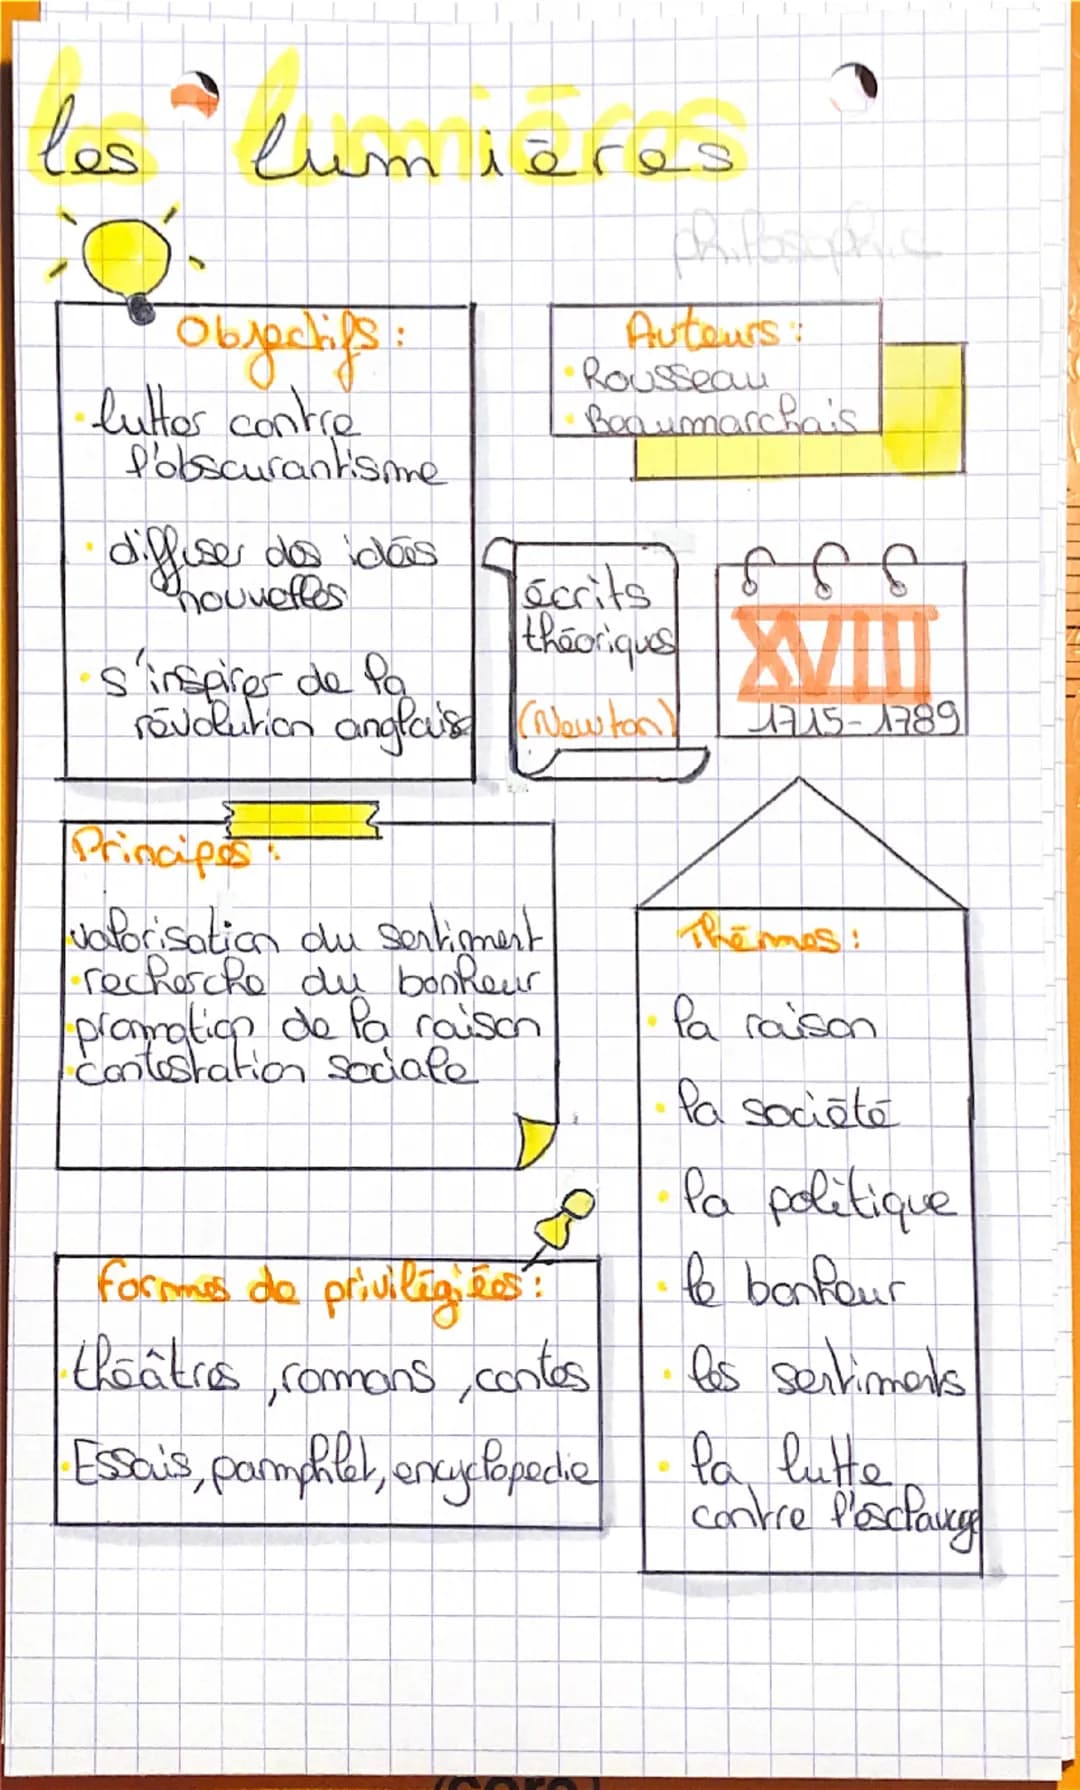 les lumières
philosophie
Objectifs :
lutter contre
l'obscurantisme
diffuser des idées
nouvelles
s'inspirer de la
révolution anglaise
Auteurs :
Rousseau
Beaumarchais
écrits
théoriques
(Newton)
XVIII
1715-1789
Principes :
valorisation du sentiment
recherche du bonheur
promotion de la raison
contestration sociale
Thèmes :
la raison
la société
la politique
le bonheur
les sentiments
la lutte
contre l'esclavage
formes de privilégiées :
théâtres, romans, contes
Essais, pamphlet, encyclopedie